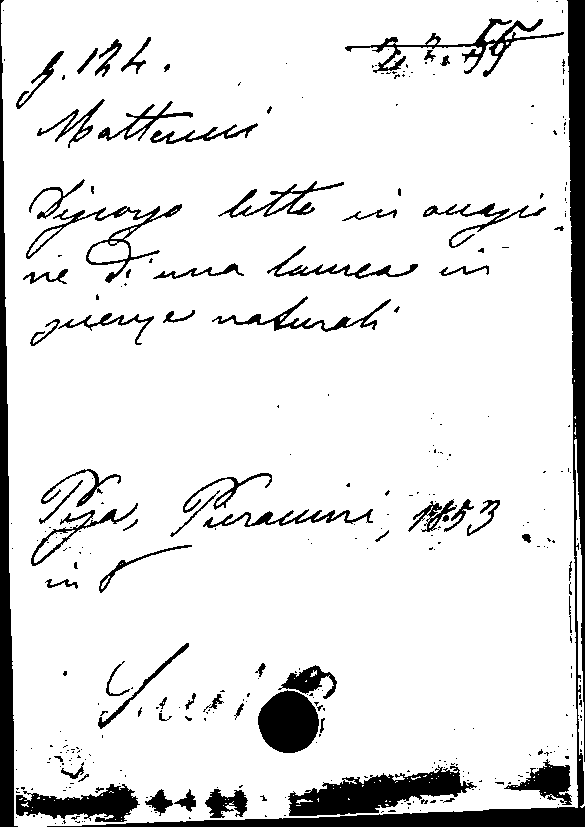 g. 124.
2. 2. 55
Matteucci
Discorso letto in occasio-
ne di una laurea in
scienze naturali
Pisa, Pieraccini, 1853
in 8